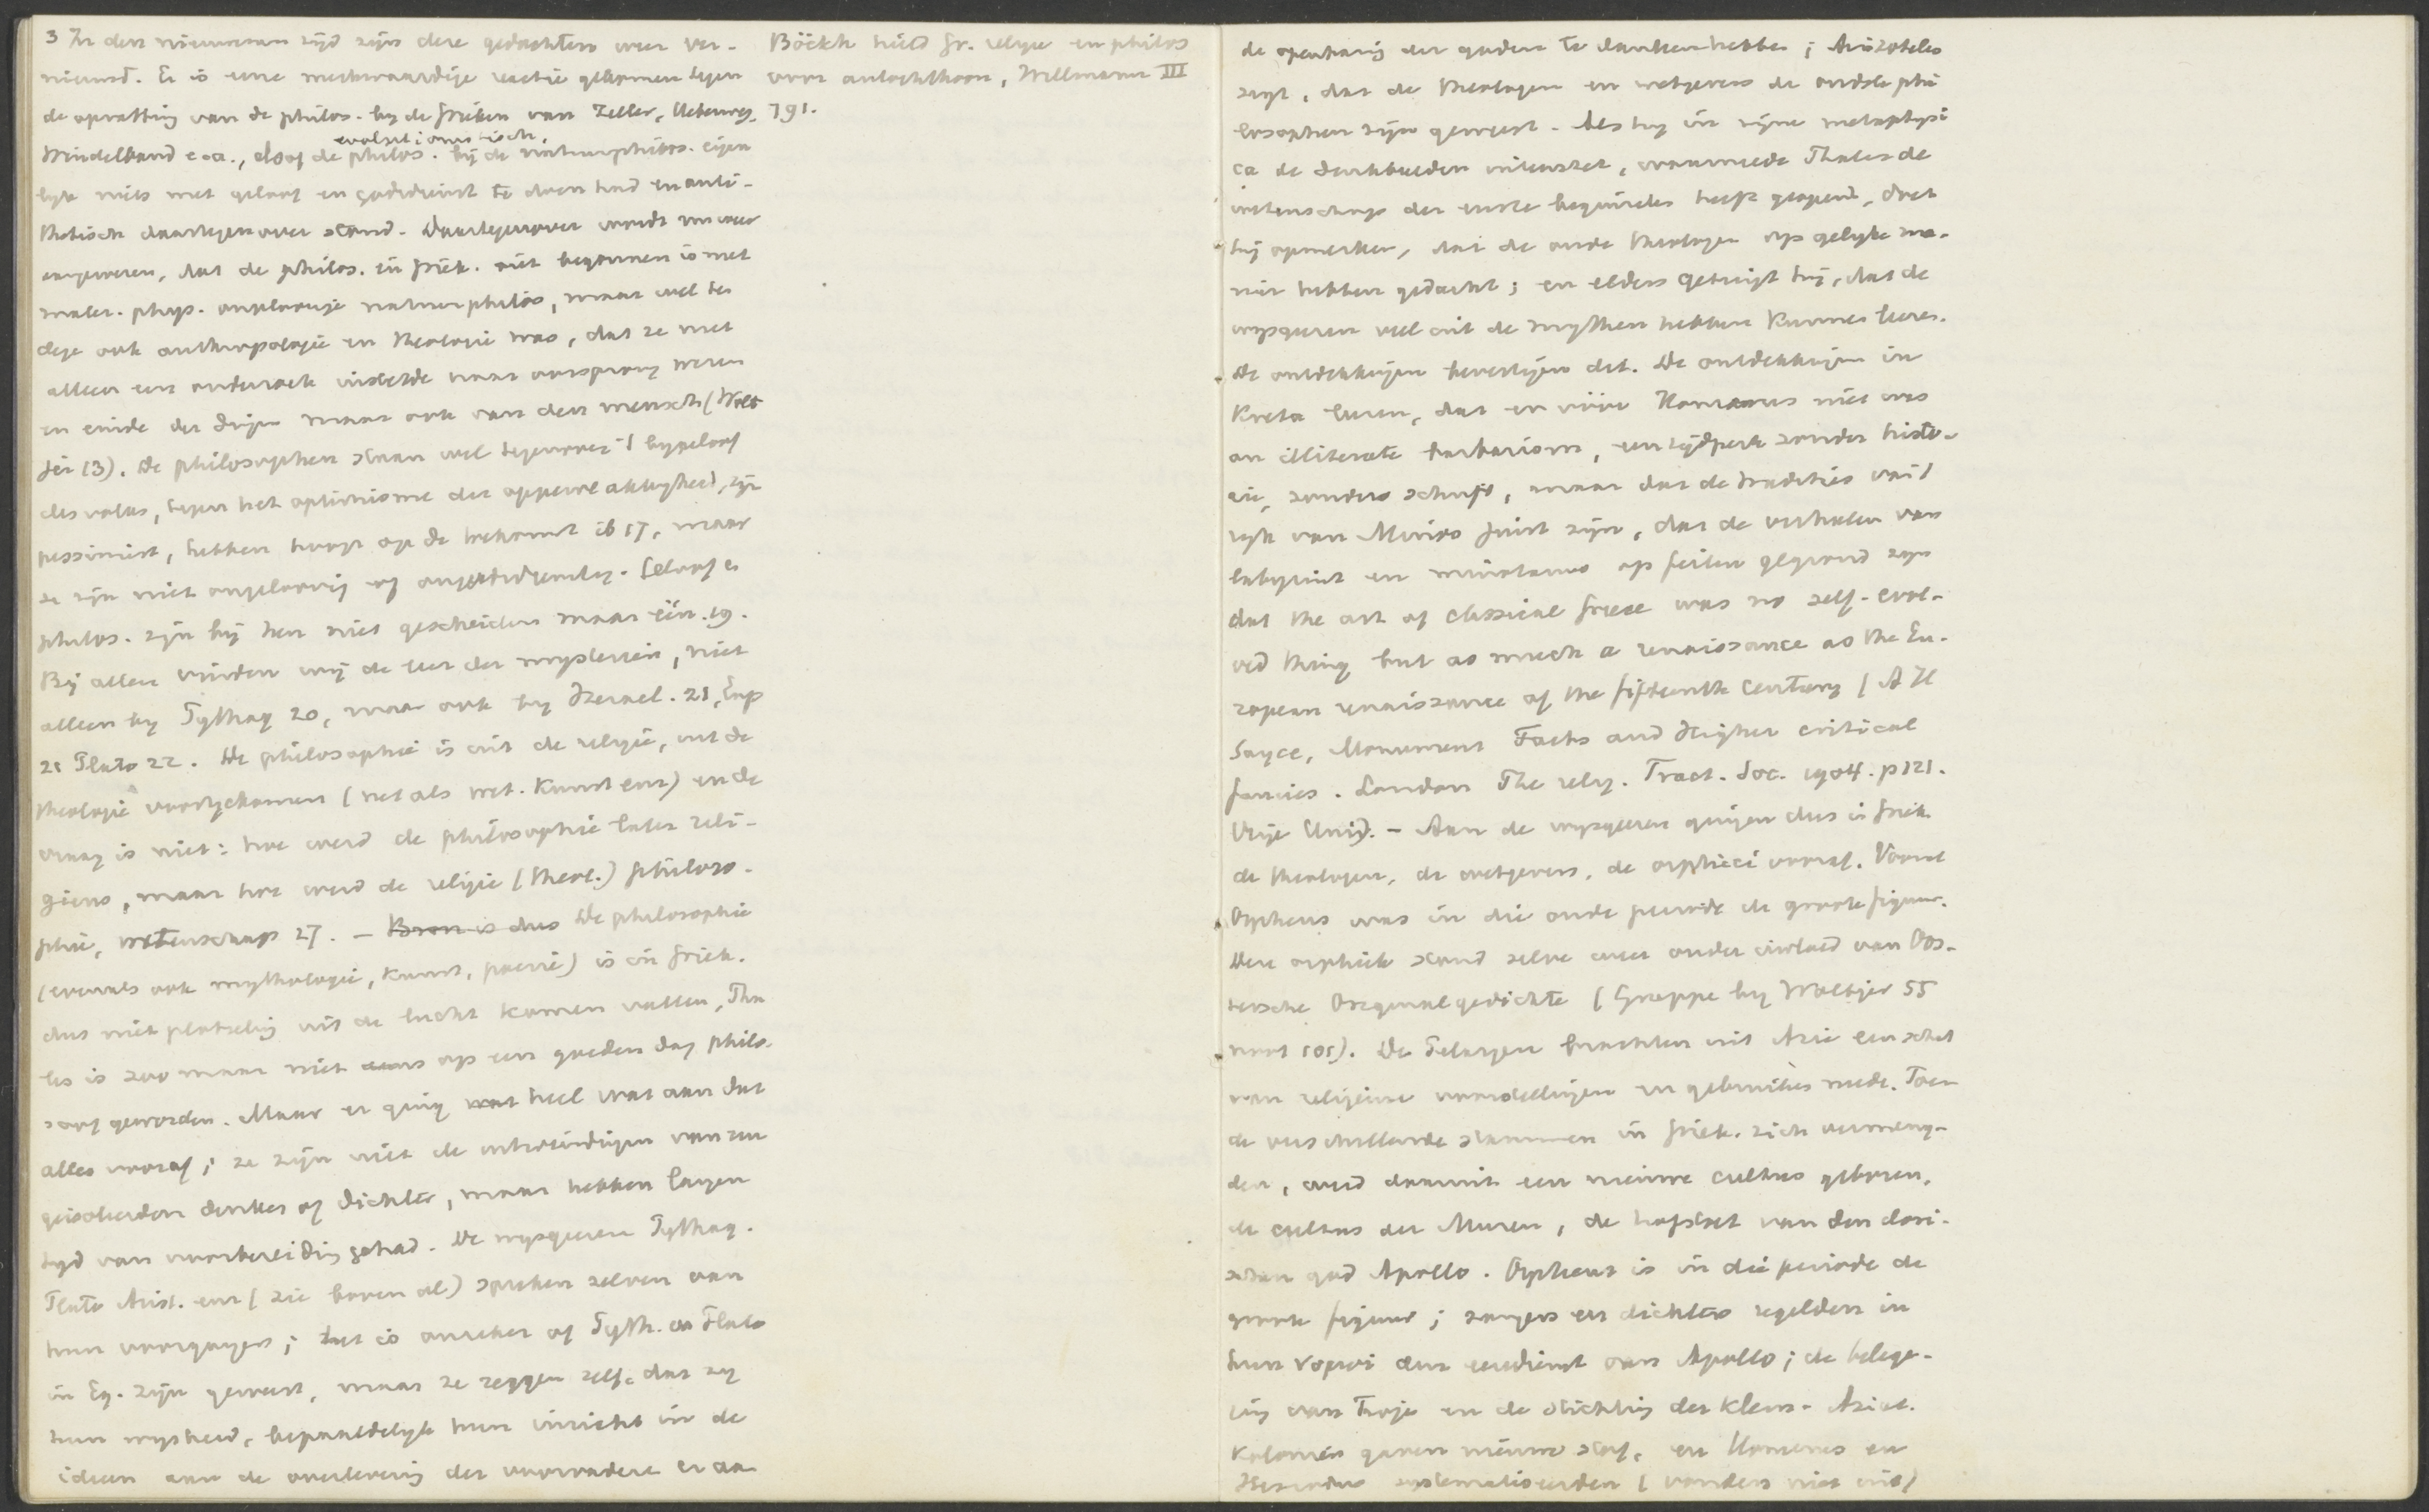 3 In den nieuweren tijd zijn deze gedachten weer ver-
nieuwd. Er is eene merkwaardige reactie gekomen tegen
de opvatting van de philos. bij de Grieken van Zeller, Ueberweg,
evolutionistisch,
Windelband e.a., alsof de philos. bij de natuurphilos. eigen
lijk niets met geloof en godsdienst te doen had en anti-
thetisch daartegenover stond. Daartegenover wordt nu weer
aangewezen, dat de philos. in Griek. niet begonnen is met
mater. phys. ongeloovige natuurphilos, maar wel ter
dege ook anthropologie en theologie was, dat ze niet
alleen een onderzoek instelde naar oorsprong wezen
en einde der dingen maar ook van den mensch (Wolt
jer 13). De philosophen staan wel tegenover 't bijgeloof
des volks, tegen het optimisme der oppervlakkigheid, zijn
pessimist, hebben hoop op de toekomst ib 17, maar
ze zijn niet ongeloovig of ongodsdienstig. Geloof en
philos. zijn bij hen niet gescheiden maar één. 19.
Bij allen vinden wij de leer der mysteriën, niet
alleen bij Pythag 20, maar ook bij Heracl. 21, Emp
21 Plato 22. De philosophie is uit de religie, uit de
theologie voortgekomen (net als wet. kunst enz) en de
vraag is niet: hoe werd de philosophie later reli-
gieus, maar hoe werd de religie (theol.) philoso-
phie, wetenschap 27. - Bron is dus De philosophie
(evenals ook mythologie, kunst, poezie) is in Griek.
dus niet plotseling uit de lucht komen vallen, Tha
les is zoo maar niet eens op een goeden dag philo-
soof geworden. Maar er ging wat heel wat aan dat
alles vooraf; ze zijn niet de uitvindingen van een
geisoleerden denker of dichter, maar hebben langen
tijd van voorbereiding gehad. De wijsgeeren Pythag.
Plato Arist. enz (zie boven al) spreken zelven van
hun voorgangers; het is onzeker of Pyth. en Plato
in Eg. zijn geweest, maar ze zeggen zelf, dat zij
hun wijsheid, bepaaldelijk hun inzicht in de
ideeen aan de overlevering der voorvaderen en aan
Böckh hield Gr. religie en philos
voor autochthoon, Willmann III
791.
de openbaring der goden te danken hebben; Aristoteles
zegt, dat de theologen en wetgevers de oudste phi
losophen zijn geweest. Als hij in zijne metaphysi
ca de denkbeelden uiteenzet, waarmede Thales de
wetenschap der eerste beginselen heeft geopend, doet
hij opmerken, dat de oude theologen op gelijke ma-
nier hebben gedacht; en elders getuigt hij, dat de
wijsgeeren veel uit de mythen hebben kunnen leeren.
De ontdekkingen bevestigen dit. De ontdekkingen in
Kreta leeren, dat er vóór Homerus niet was
an illiterate barbarism, een tijdperk zonder histo-
rie, zonder schrift, maar dat de tradities van 't
rijk van Minos juist zijn, dat de verhalen van
labyrint en minotaurus op feiten gegrond zijn
dat the art of classical Greece was no self-evol-
ved thing but as much a renaissance as the Eu-
ropean renaissance of the fifteenth century (A H
Sayce, Monument Facts and Higher critical
fancies. London The relig. Tract. Soc. 1904. p 121.
Vrije Univ). - Aan de wijsgeeren gingen dus in Griek
de theologen, de wetgevers, de orphici vooraf. Vooral
Orpheus was in die oude periode de groote figuur.
Deze orphiek stond zelve weer onder invloed van Oos-
tersche Orignalgedichte (Gruppe bij Woltjer 55
noot 105). De Pelasgen brachten uit Azie een schat
van religieuze voorstellingen en gebruiken mede. Toen
de verschillende stammen in Griek. zich vermeng-
den, werd daaruit een nieuwe cultus geboren,
de cultus der Muzen, de hofstoet van den dori-
schen god Apollo. Orpheus is in die periode de
groote figuur; zangers en dichters regelden in
hun νομοι den eeredienst van Apollo; de belege-
ring van Troje en de stichting der Klein-Aziat.
Kolonien gaven nieuwe stof, en Homerus en
Hesiodus systematiseerden (vonden niet uit)